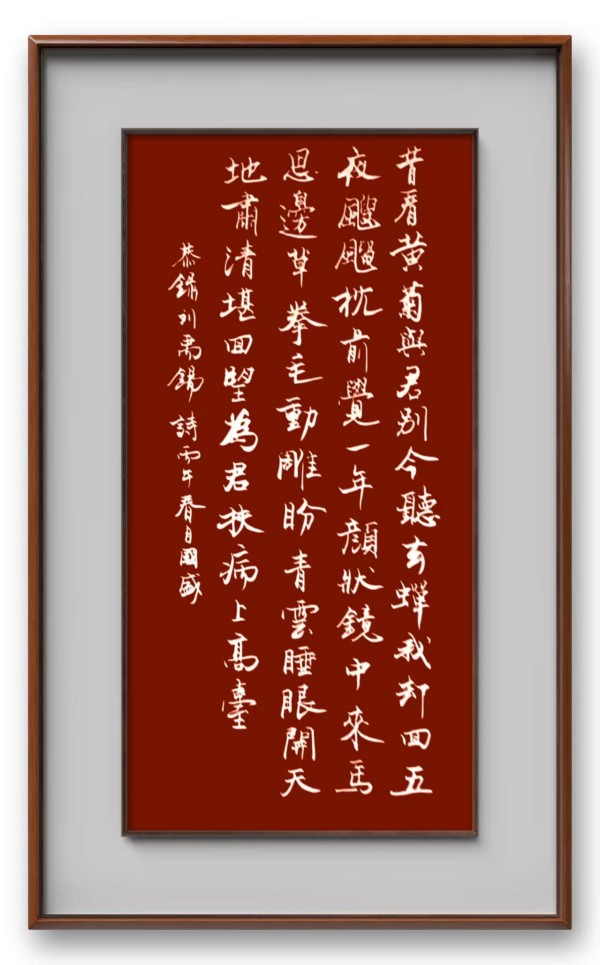 昔看黄菊與君别今聽玄蟬我却回五
夜颼飀枕前覺一年顔狀鏡中來馬
思邊草拳毛動雕盼青雲睡眼開天
地肅清堪回望為君扶病上高臺
恭録刘禹錫詩丙午春月國盛